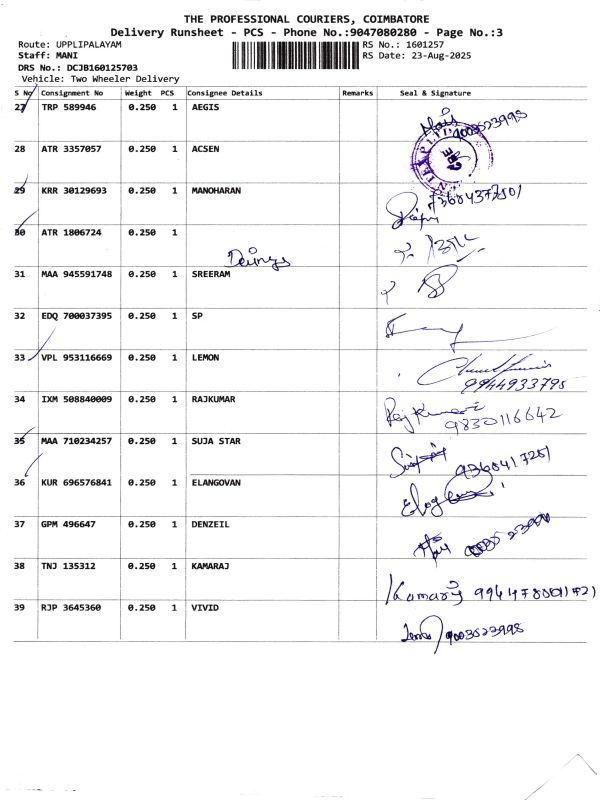 THE PROFESSIONAL COURIERS, COIMBATORE
Delivery Runsheet - PCS - Phone No.:9047080280 - Page No.:3
Route: UPPLIPALAYAM RS No.: 1601257
Staff: MANI RS Date: 23-Aug-2025
DRS No.: DCJB160125703
Vehicle: Two Wheeler Delivery
S No Consignment No Weight PCS Consignee Details Remarks Seal & Signature
27 TRP 589946 0.250 1 AEGIS
28 ATR 3357057 0.250 1 ACSEN
29 KRR 30129693 0.250 1 MANOHARAN
30 ATR 1806724 0.250 1
31 MAA 945591748 0.250 1 SREERAM
32 EDQ 700037395 0.250 1 SP
33 VPL 953116669 0.250 1 LEMON
9944933795
34 IXM 508840009 0.250 1 RAJKUMAR Raj Kumar
9830116642
35 MAA 710234257 0.250 1 SUJA STAR
36 KUR 696576841 0.250 1 ELANGOVAN
37 GPM 496647 0.250 1 DENZEIL
38 TNJ 135312 0.250 1 KAMARAJ Kamaraj
39 RJP 3645360 0.250 1 VIVID 9003523998